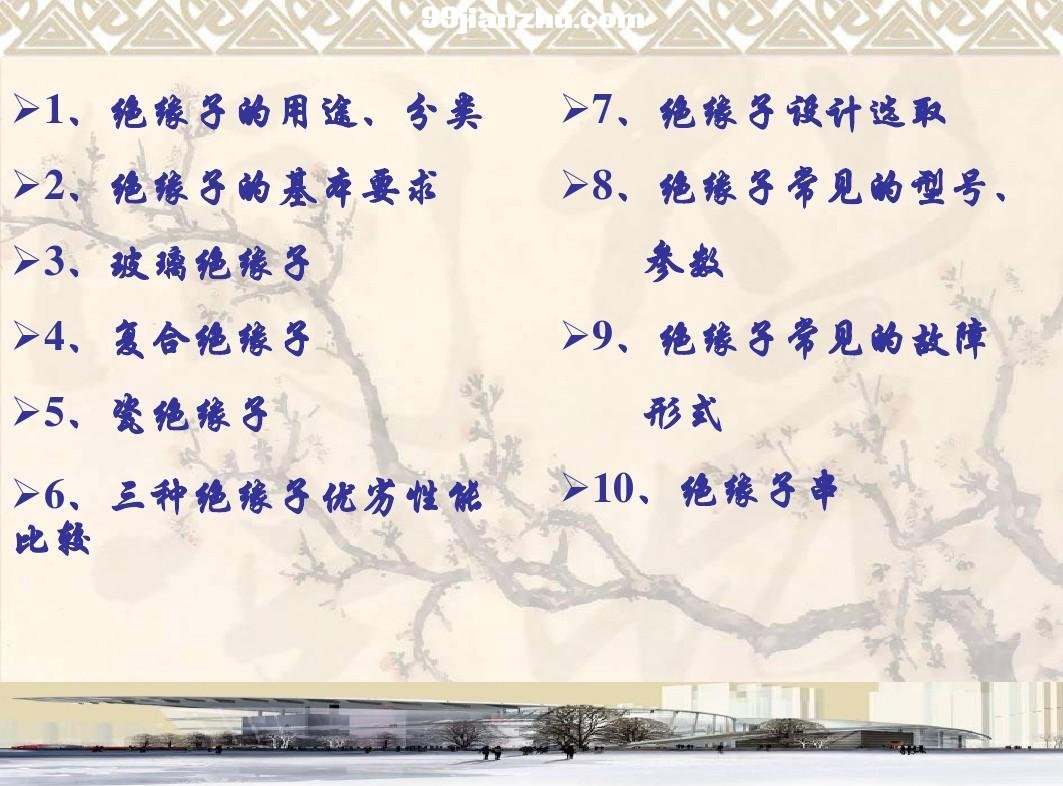 99jianzhu.com
➢1、绝缘子的用途、分类
➢2、绝缘子的基本要求
➢3、玻璃绝缘子
➢4、复合绝缘子
➢5、瓷绝缘子
➢6、三种绝缘子优劣性能
比较
➢7、绝缘子设计选取
➢8、绝缘子常见的型号、
参数
➢9、绝缘子常见的故障
形式
➢10、绝缘子串